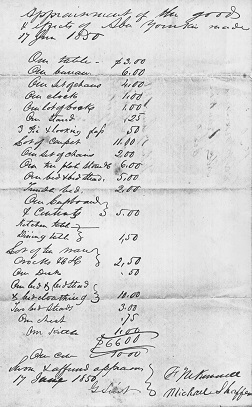 Appraisement of the good
& effects of
17 Jan 1850
One table - $3.00
One bureau 6.00
One set of chairs 4.00
One clock 1.00
One lot of books 1.00
One stand .25
& looking glass .50
Lot of Carpet 11.00
One lot of chairs 2.00
One ten plate stove 6.00
One bed & bedstead 5.00
Trundle bed 2.00
One Cupboard
& Contents } 5.00
Kitchen table
Dining table } 1,50
Lot of tin ware
Crocks } 2,50
One Desk .50
One bed & bedstead
& bed cloathing } 10.00
Two bedsteads 3.00
One chest .75
One 1.00
$66.00
One cow 10.00
Sworn & affirmed
17 Jany 1850
Michael Shaffer